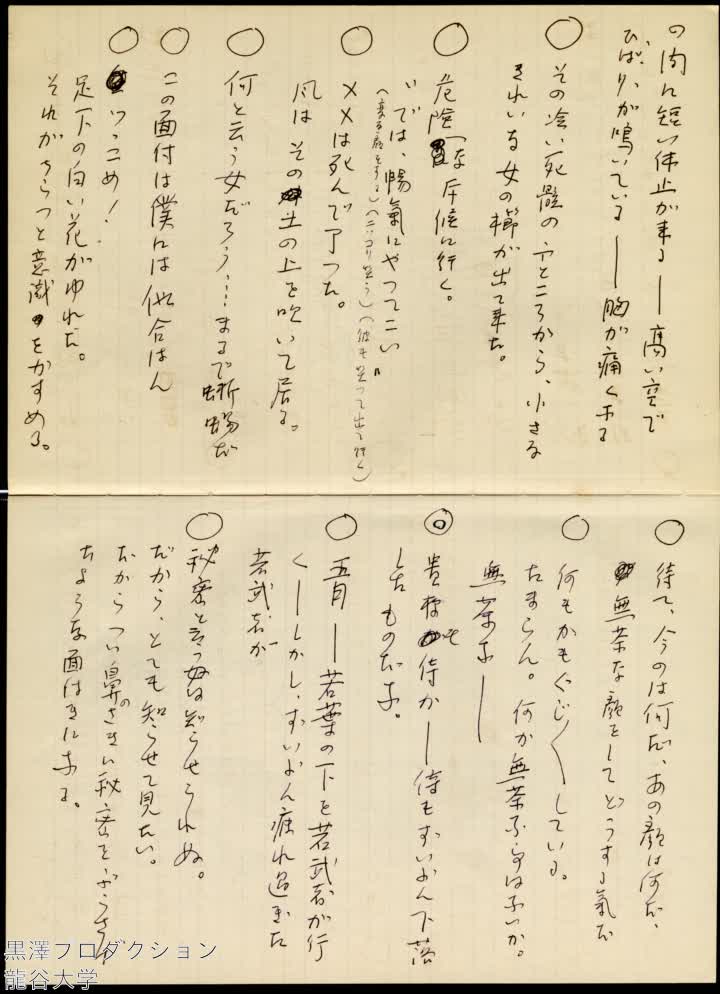 の間に短い休止が来る──高い空で
ひばりが鳴いている──胸が痛くなる
○ その冷い死骸のふところから、小さな
きれいな女の櫛が出て来た。
○ 危険な斥候に行く。
では、陽氣にやつてこい
(ニッコリ笑う)(彼も笑って出て行く)
××は死んで了つた。
風はその土の上を吹いて居る。
○ 何と云う女だろう、…まるで蜥蜴だ
○ この面付は僕には似合はん
○ わっ!
足下の白い花がゆれた。
それがさらっと意識をかすめる。
○ 待て、今のは何だ、あの顔は何だ、
無茶な顔をしてどうする氣だ
○ 何もかもぐじ〱している。
たまらん。何か無茶な事はないか。
無茶な──
◎ 貴様も侍か──侍もずいぶん下落
したものだな。
○ 五月──若葉の下を若武者が行
く──しかし、ずいぶん疲れ過ぎた
若武者だ
○ 秘密と云う奴は知らせられぬ。
だから、とても知らせて見たい。
だからつい鼻のさきに秘密をぶらさげ
たような面はきになる。
黒澤プロダクション
龍谷大学